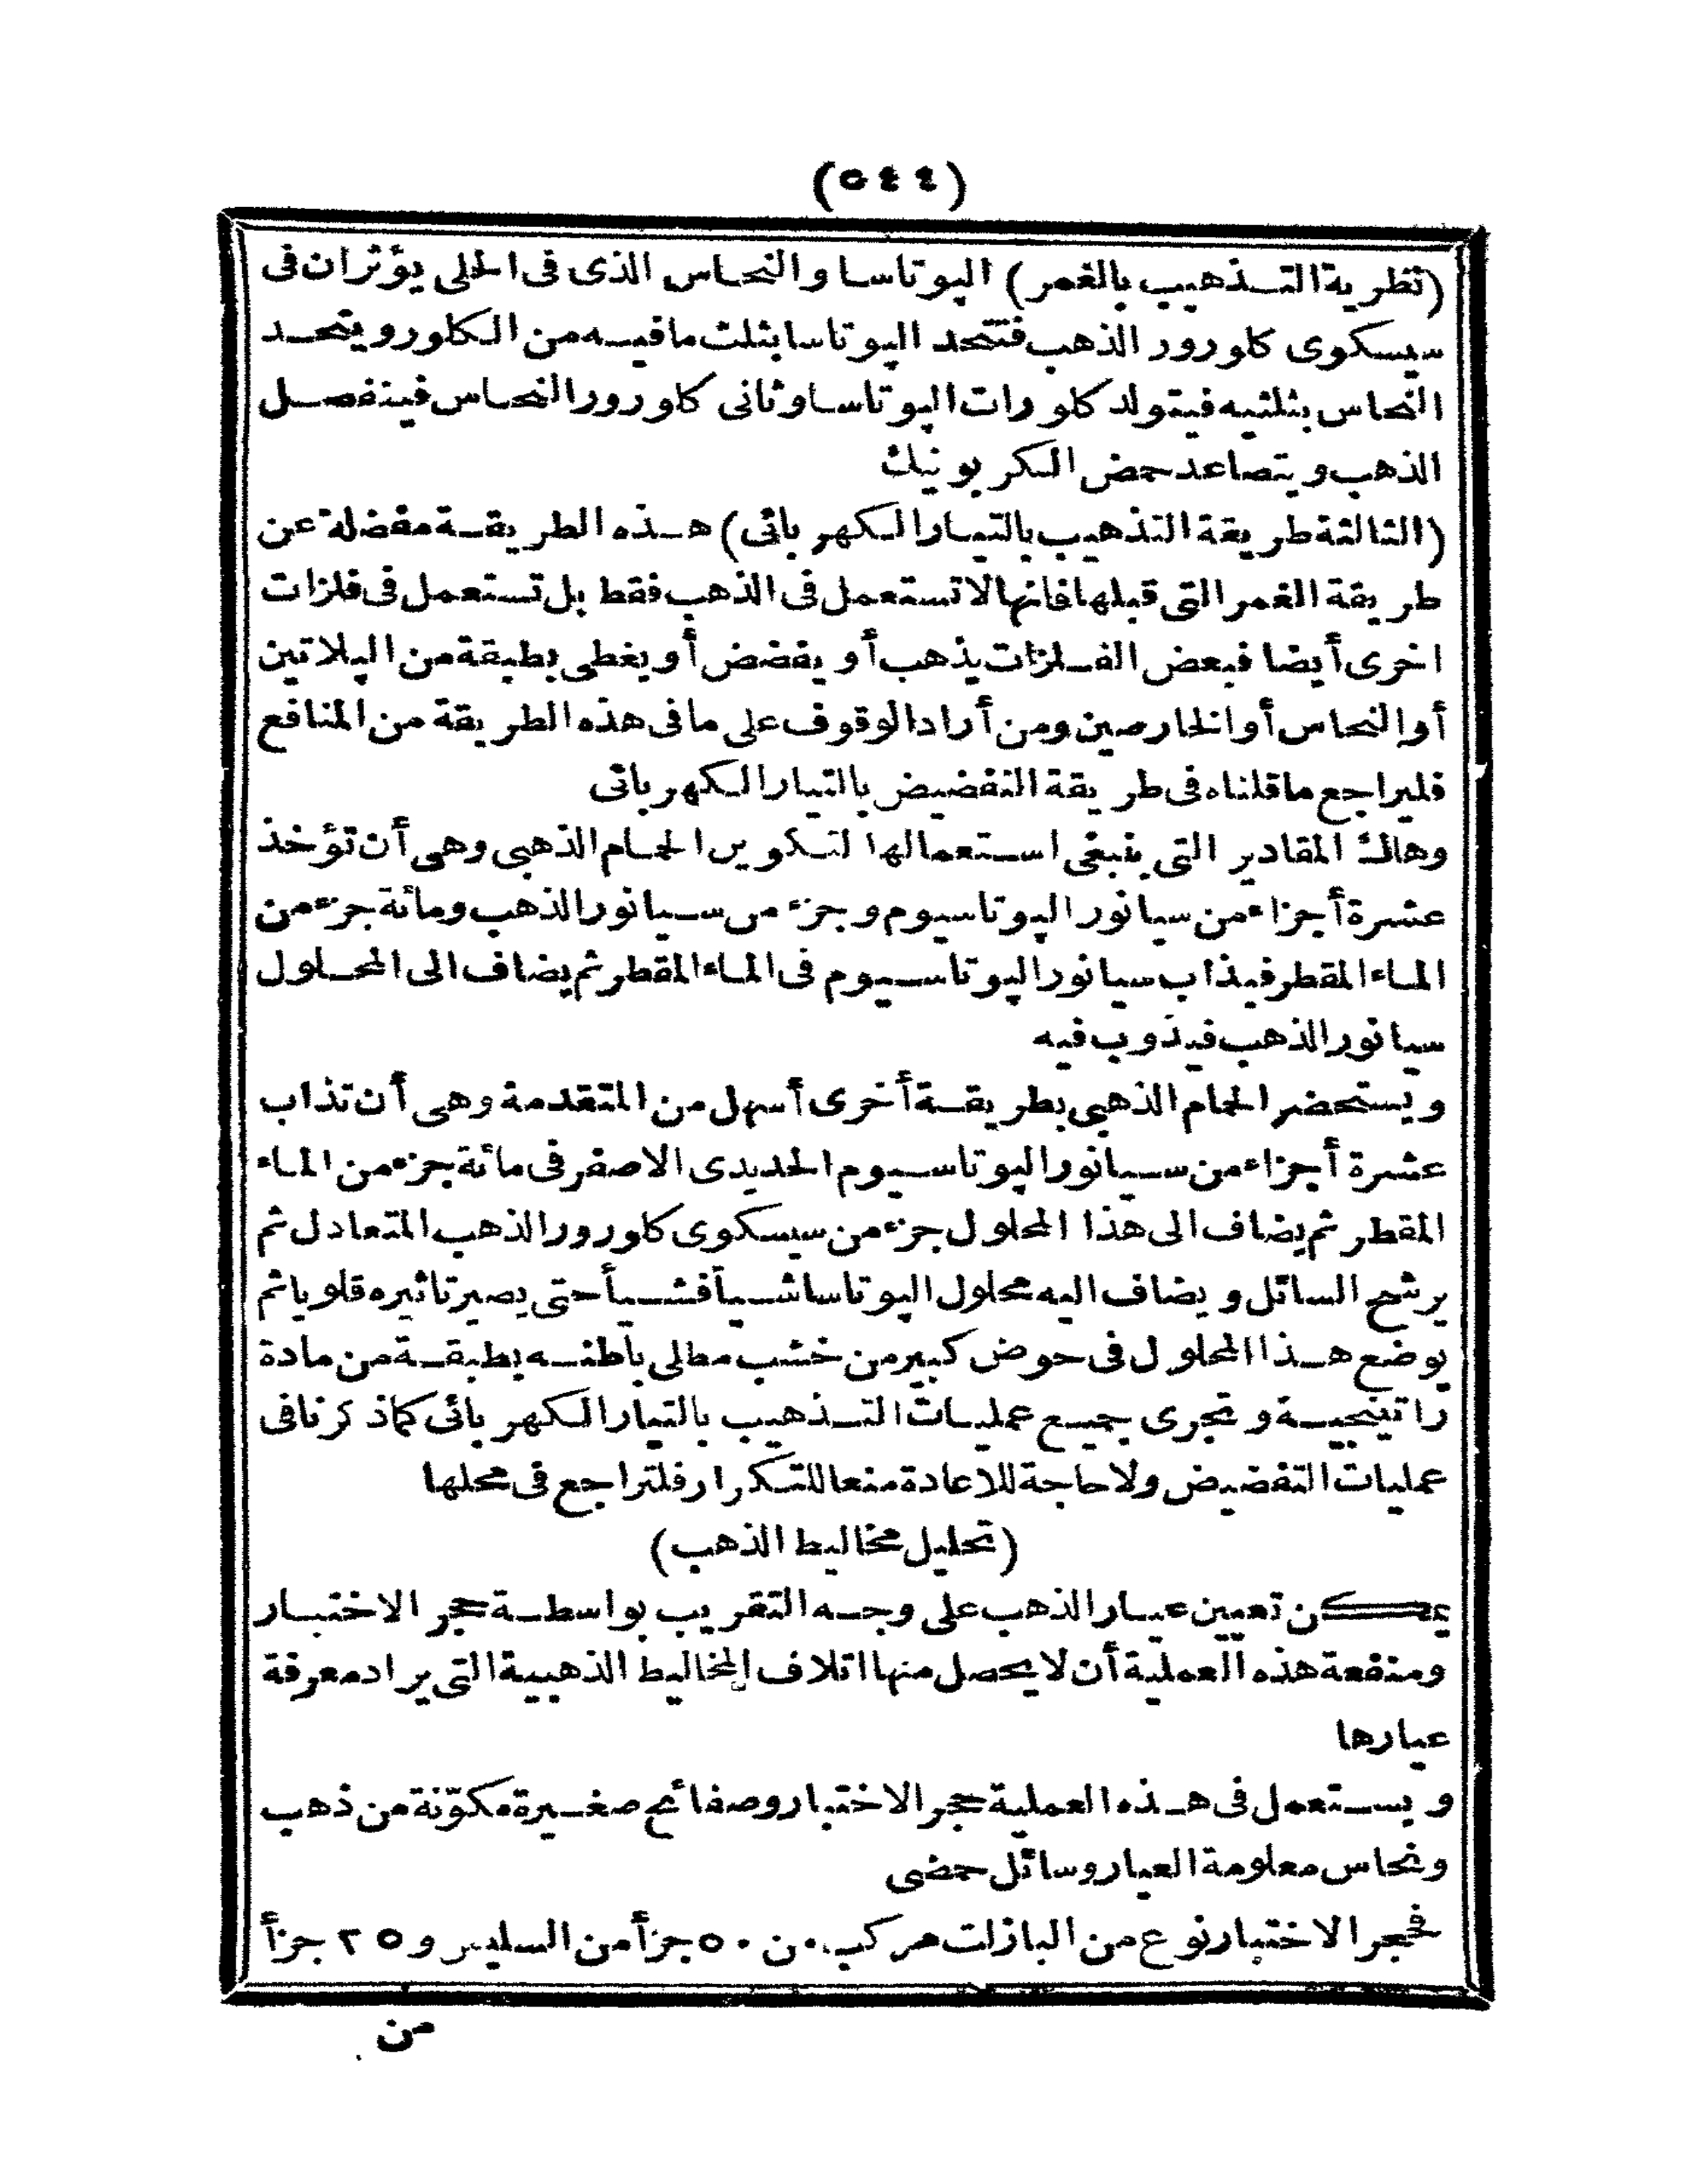 (٥٤٤)
(نظرية التذهيب بالغمر) الپوتاسا والنحاس الذى فى الحلى يؤثران فى
سيسكوى كلورور الذهب فتتحد الپوتاسا بثلث ما فيه من الكلور ويتحد
النحاس بثلثيه فيتولد كلورات الپوتاسا وثانى كلورور النحاس فينفصل
الذهب ويتصاعد حمض الكربونيك
(الثالثة طريقة التذهيب بالتيار الكهربائى) هذه الطريقة مفضلة عن
طريقة الغمر التى قبلها فانها لا تستعمل فى الذهب فقط بل تستعمل فى فلزات
اخرى أيضا فبعض الفلزات يذهب أو يفضض أو يغطى بطبقة من الپلاتين
أو النحاس أو الخارصين ومن أراد الوقوف على ما فى هذه الطريقة من المنافع
فليراجع ما قلناه فى طريقة التفضيض بالتيار الكهربائى
وهاك المقادير التى ينبغى استعمالها لتكوين الحمام الذهبى وهى أن تؤخذ
عشرة أجزاء من سيانور الپوتاسيوم وجزء من سيانور الذهب ومائة جزء من
الماء المقطر فيذاب سيانور الپوتاسيوم فى الماء المقطر ثم يضاف الى المحلول
سيانور الذهب فيذوب فيه
ويستحضر الحمام الذهبى بطريقة أخرى أسهل من المتقدمة وهى أن تذاب
عشرة أجزاء من سيانور الپوتاسيوم الحديدى الاصفر فى مائة جزء من الماء
المقطر ثم يضاف الى هذا المحلول جزء من سيسكوى كلورور الذهب المتعادل ثم
يرشح السائل ويضاف اليه محلول الپوتاسا شيأ فشيأ حتى يصير تاثيره قلويا ثم
يوضع هذا المحلول فى حوض كبير من خشب مطلى باطنه بطبقة من مادة
راتينجية وتجرى جميع عمليات التذهيب بالتيار الكهربائى كما ذكرنا فى
عمليات التفضيض ولا حاجة للاعادة منعا للتكرار فلتراجع فى محلها
(تحليل مخاليط الذهب)
يمكن تعيين عيار الذهب على وجه التقريب بواسطة حجر الاختبار
ومنفعة هذه العملية أن لا يحصل منها اتلاف المخاليط الذهبية التى يراد معرفة
عيارها
ويستعمل فى هذه العملية حجر الاختبار وصفائح صغيرة مكوّنة من ذهب
ونحاس معلومة العيار وسائل حمضى
فحجر الاختبار نوع من البازلت مركب من ٥٠ جزأ من السليس و ٢٥ جزأ
من